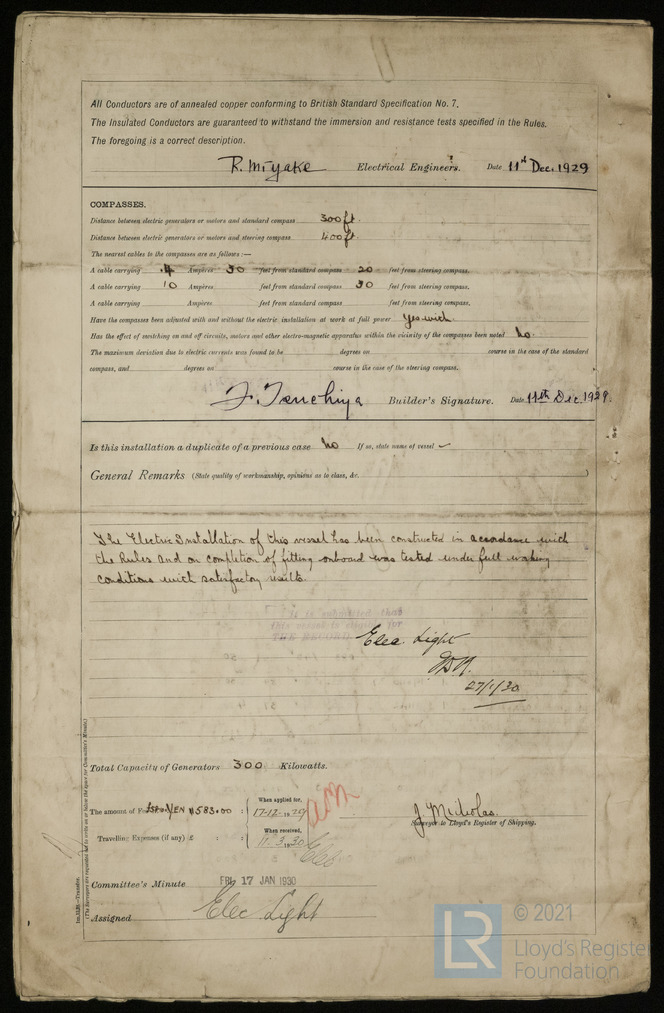 All Conductors are of annealed copper conforming to British Standard Specification No. 7.
The Insulated Conductors are guaranteed to withstand the immersion and resistance tests specified in the Rules.
The foregoing is a correct description.
R. Miyake Electrical Engineers. Date 11th Dec. 1929
COMPASSES.
Distance between electric generators or motors and standard compass 300 ft.
Distance between electric generators or motors and steering compass 400 ft.
The nearest cables to the compasses are as follows:—
A cable carrying .4 Ampères 30 feet from standard compass 20 feet from steering compass.
A cable carrying 10 Ampères feet from standard compass 30 feet from steering compass.
A cable carrying Ampères feet from standard compass feet from steering compass.
Have the compasses been adjusted with and without the electric installation at work at full power Yes with.
Has the effect of switching on and off circuits, motors and other electro-magnetic apparatus within the vicinity of the compasses been noted No.
The maximum deviation due to electric currents was found to be degrees on course in the case of the standard
compass, and degrees on course in the case of the steering compass.
Builder's Signature. Date 11th Dec. 1929.
Is this installation a duplicate of a previous case No If so, state name of vessel
General Remarks (State quality of workmanship, opinions as to class, &c.
The Electric Installation of this vessel has been constructed in accordance with
the Rules and on completion of fitting onboard was tested under full working
conditions with satisfactory results.
It is submitted that
this vessel is eligible for
THE RECORD
Elec. Light
27/1/30
Total Capacity of Generators 300 Kilowatts.
The amount of YEN 583.00 When applied for, 17-12-1929
Travelling Expenses (if any) £ : : When received, 11.3.1930
J. Nicholas.
Surveyor to Lloyd's Register of Shipping.
Committee's Minute FRI. 17 JAN 1930
Assigned Elec Light
(The Surveyors are requested not to write on or below the space for Committee's Minute.)
LR © 2021
Lloyd's Register
Foundation